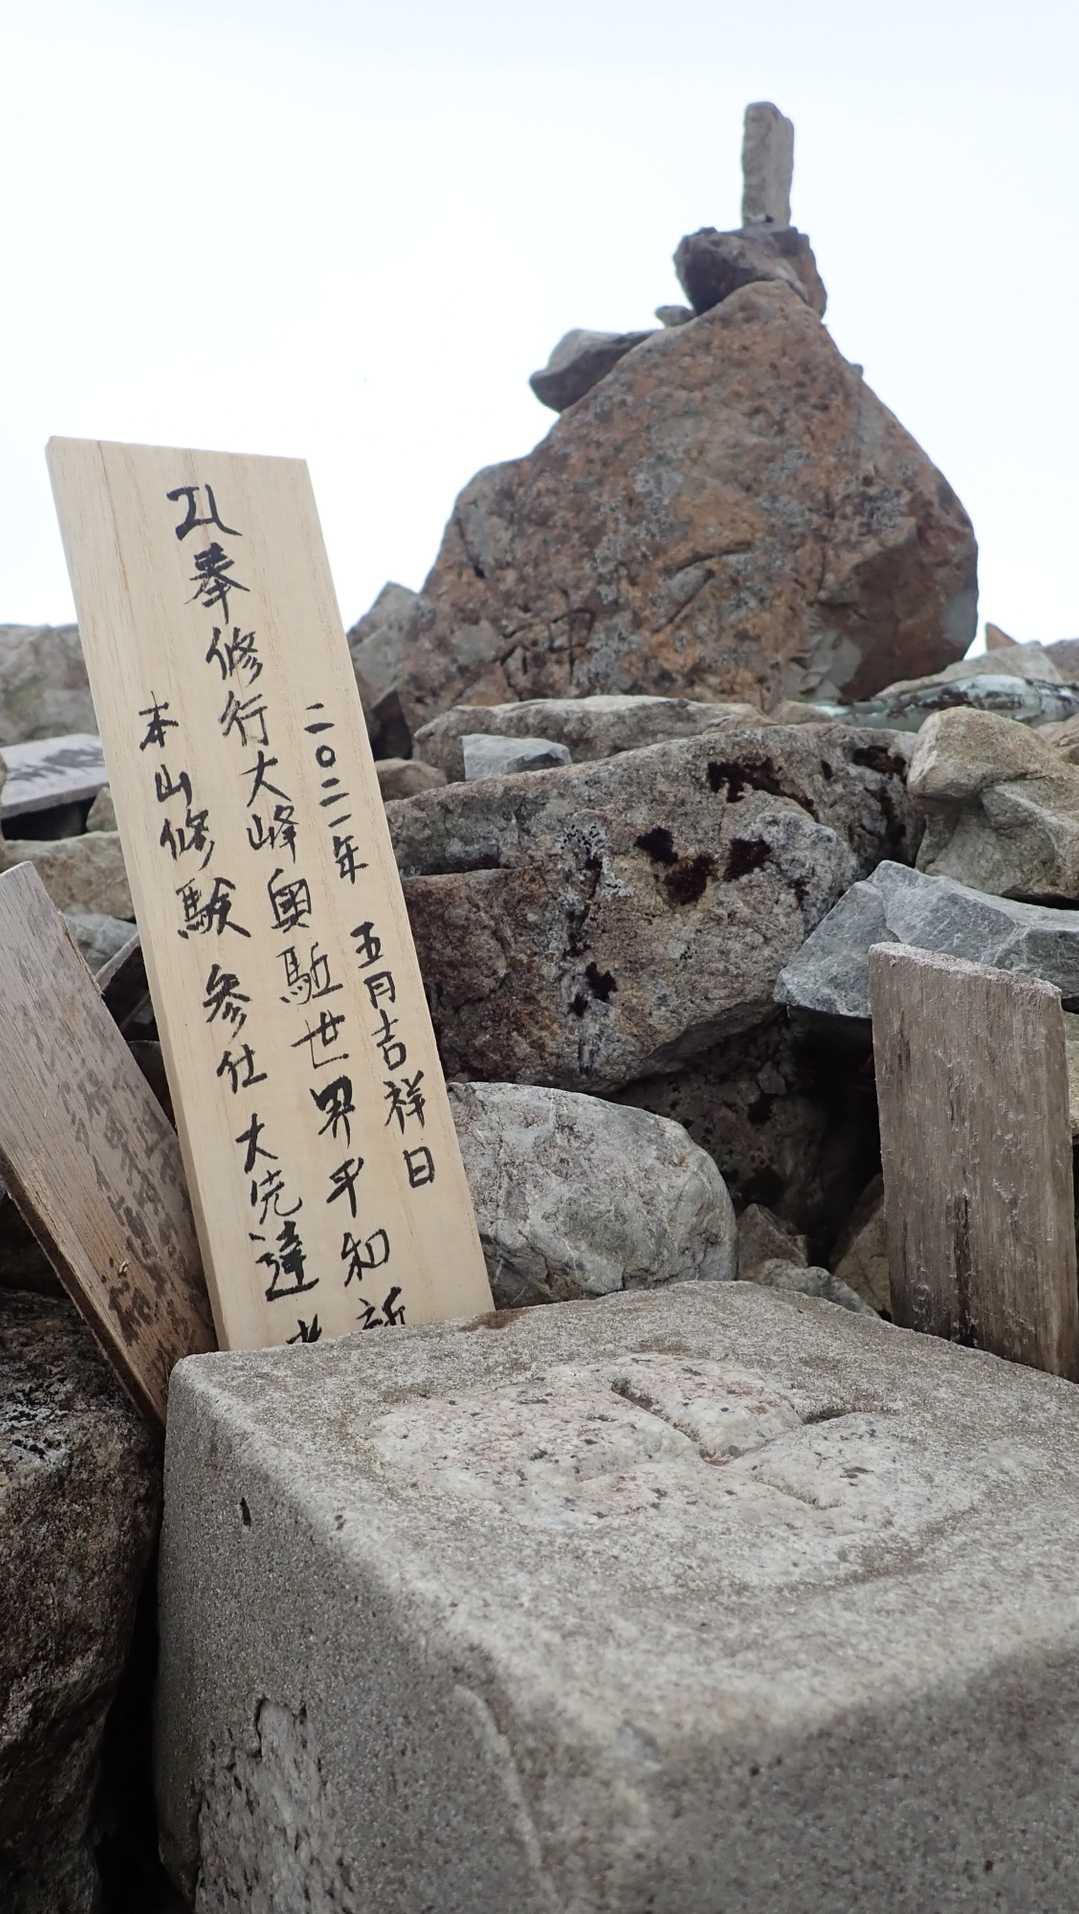 二〇二一年 五月吉祥日
奉修行大峰奥駈世界平和祈
本山修験 参仕 大先達